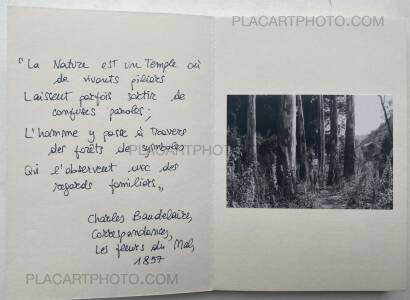 PLACARTPHOTO.COM
"La Nature est un Temple où
de vivants piliers
Laissent parfois sortir de
confuses paroles;
L'homme y passe à travers
des forêts de symboles
Qui l'observent avec des
regards familiers„
Charles Baudelaire,
Correspondances,
Les fleurs du Mal,
1857
PLACARTPHOTO.COM
PLACARTPHOTO.COM
PLACARTPHOTO.COM